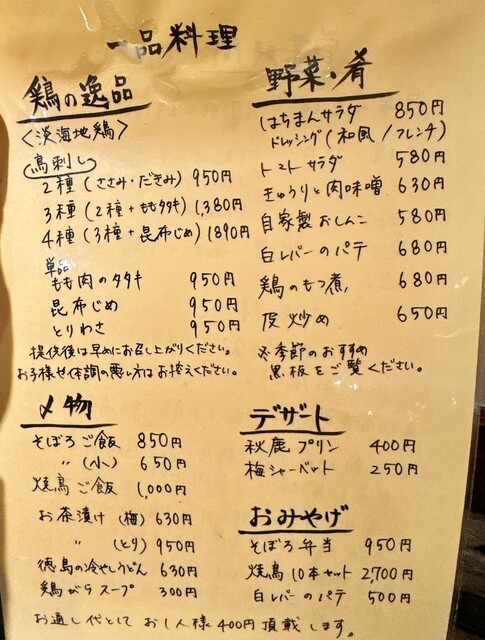 一品料理
鶏の逸品
〈淡海地鶏〉
鳥刺し
2種(ささみ・だきみ) 950円
3種(2種+ももタタキ) 1,380円
4種(3種+昆布じめ) 1890円
単品
もも肉のタタキ 950円
昆布じめ 950円
とりわさ 950円
提供後は早めにお召し上がりください。
お子様や体調の悪い方はお控えください。
〆物
そぼろご飯 850円
〃 (小) 650円
焼鳥ご飯 1,000円
お茶漬け (梅) 630円
〃 (とり) 950円
徳島の冷やしうどん 630円
鶏がらスープ 300円
野菜・肴
はちまんサラダ 850円
ドレッシング(和風/フレンチ)
トマトサラダ 580円
きゅうりと肉味噌 630円
自家製おしんこ 580円
白レバーのパテ 680円
鶏のもつ煮 680円
皮炒め 650円
※季節のおすすめ
黒板をご覧ください。
デザート
秋鹿プリン 400円
梅シャーベット 250円
おみやげ
そぼろ弁当 950円
焼鳥10本セット 2,700円
白レバーのパテ 500円
お通し代としてお一人様400円頂戴します。